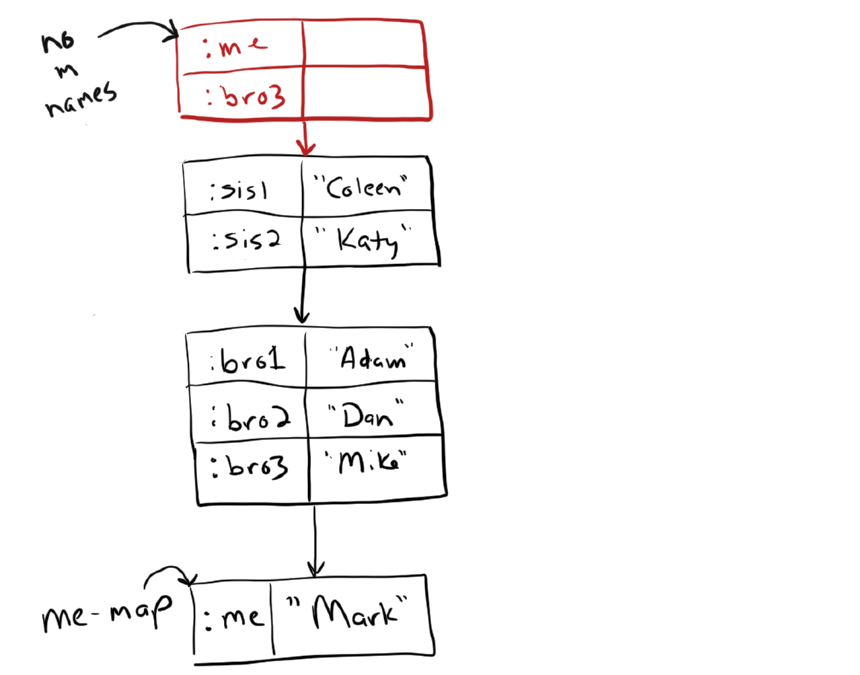 no
m
names
:me
:bro3
:sis1 "Coleen"
:sis2 "Katy"
:bro1 "Adam"
:bro2 "Dan"
:bro3 "Mike"
me-map
:me "Mark"